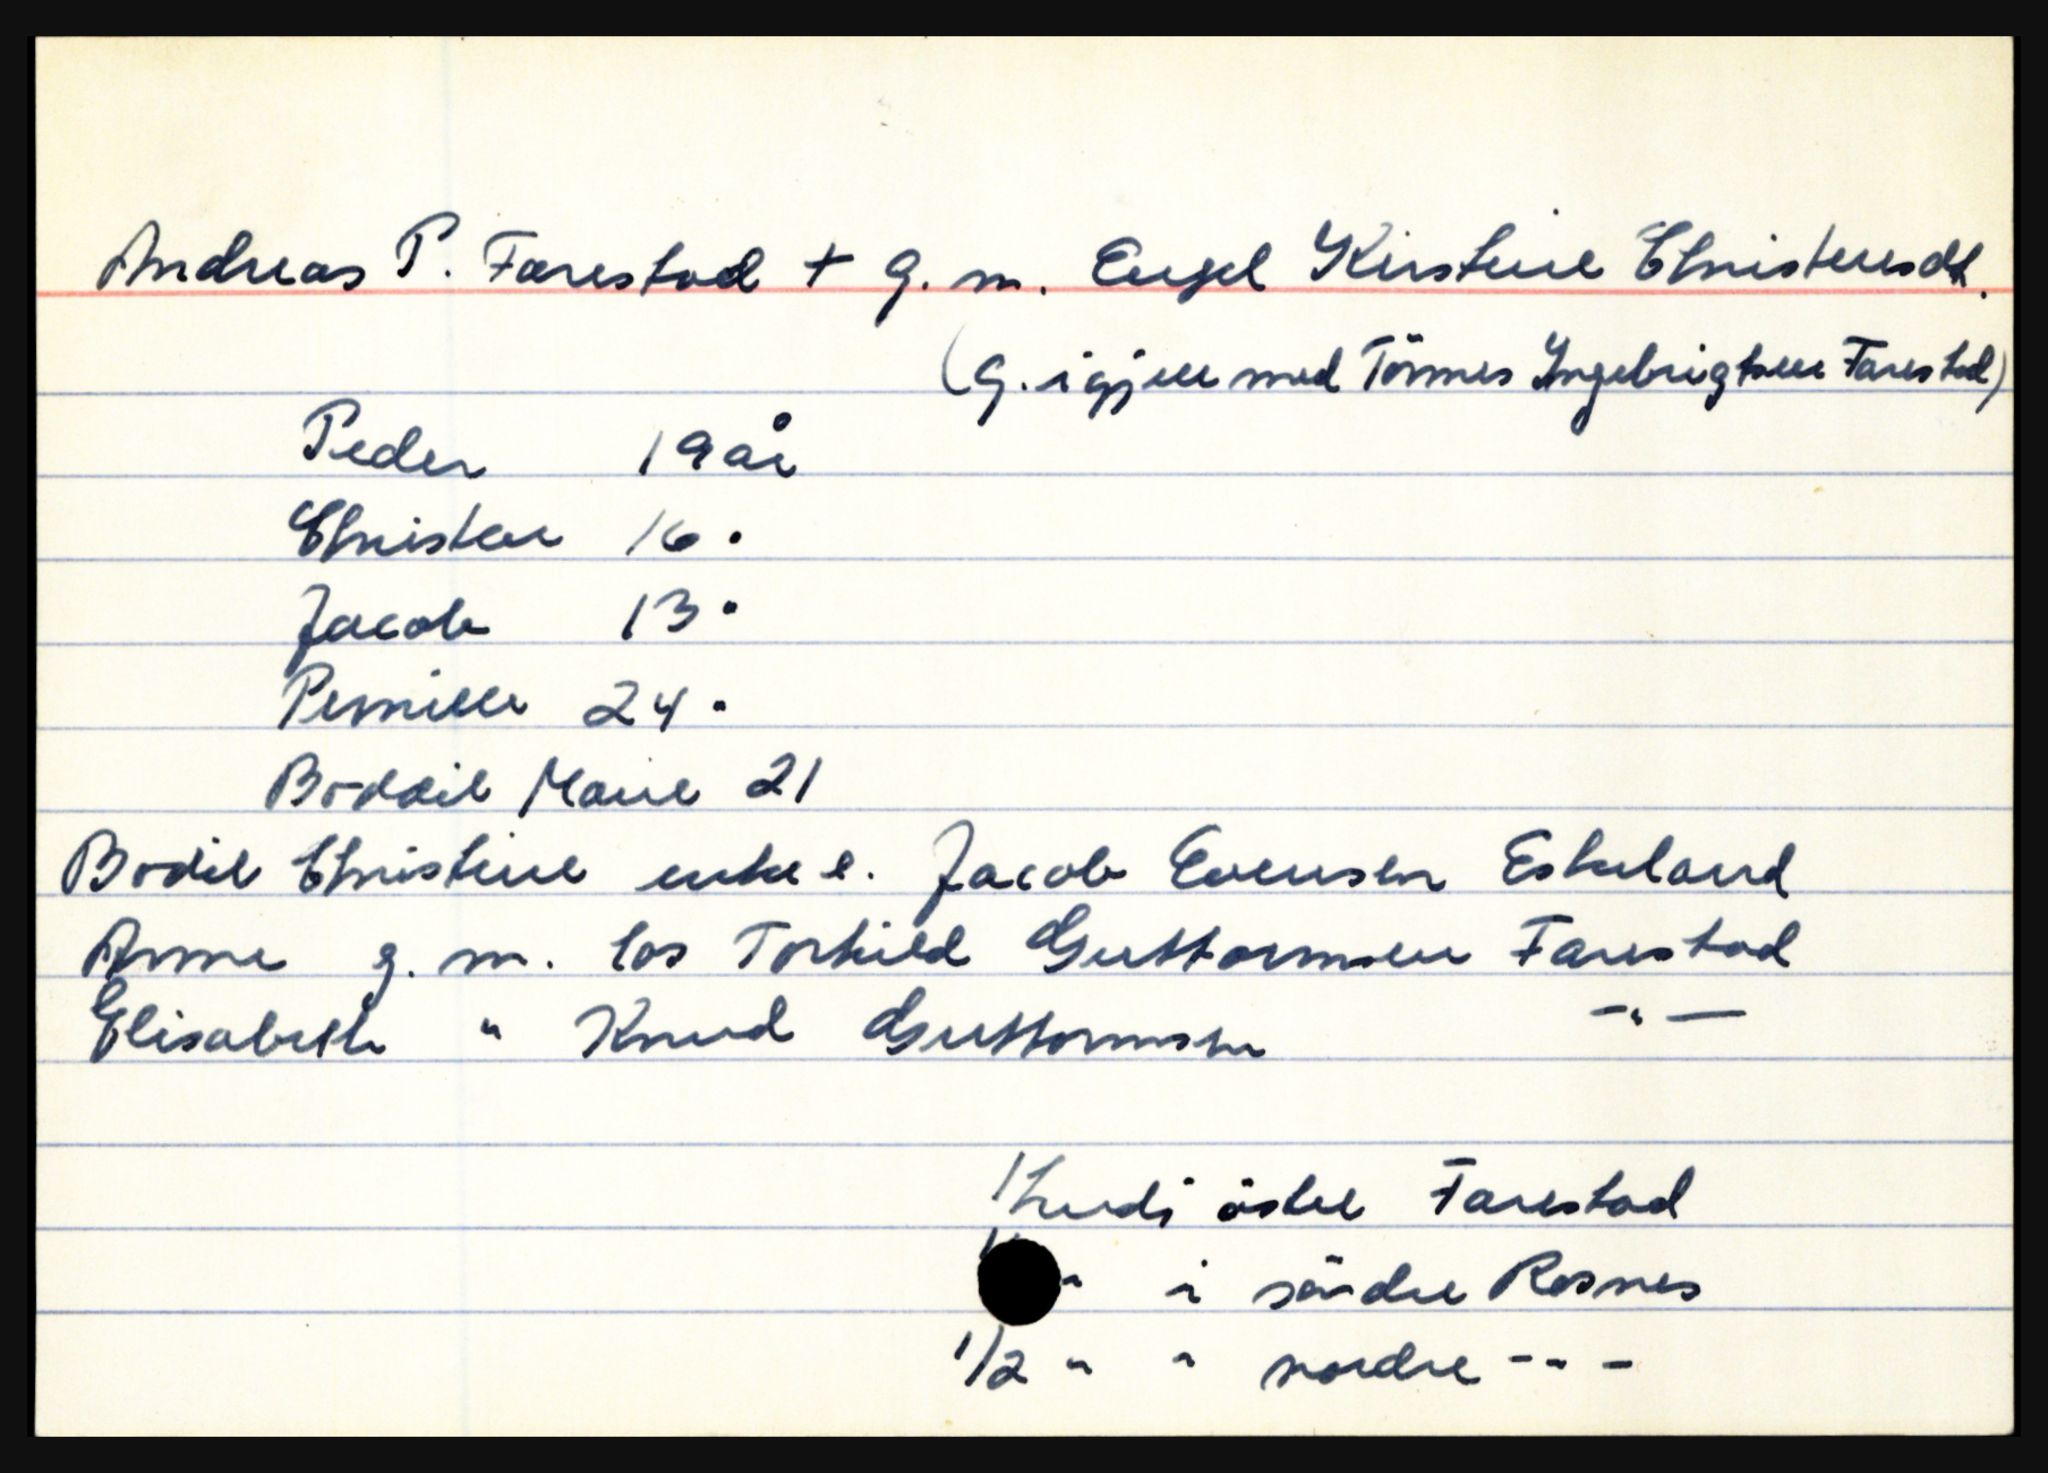 Andreas P. Farestad + g. m. Engel Kirstine Christensdt.
(g. igjen med Tönnes Ingebrigtsen Farestad)
Peder 19 år
Christen 16 "
Jacob 13 "
Pernille 24 "
Boddil Marie 21
Bodil Christine enke e. Jacob Evensen Eskeland
Anne g. m. los Torkild Guttormsen Farestad
Elisabeth " Knud Guttormsen - " -
1 hud i östre Farestad
" i söndre Rosnes
1/2 " " nordre - " -